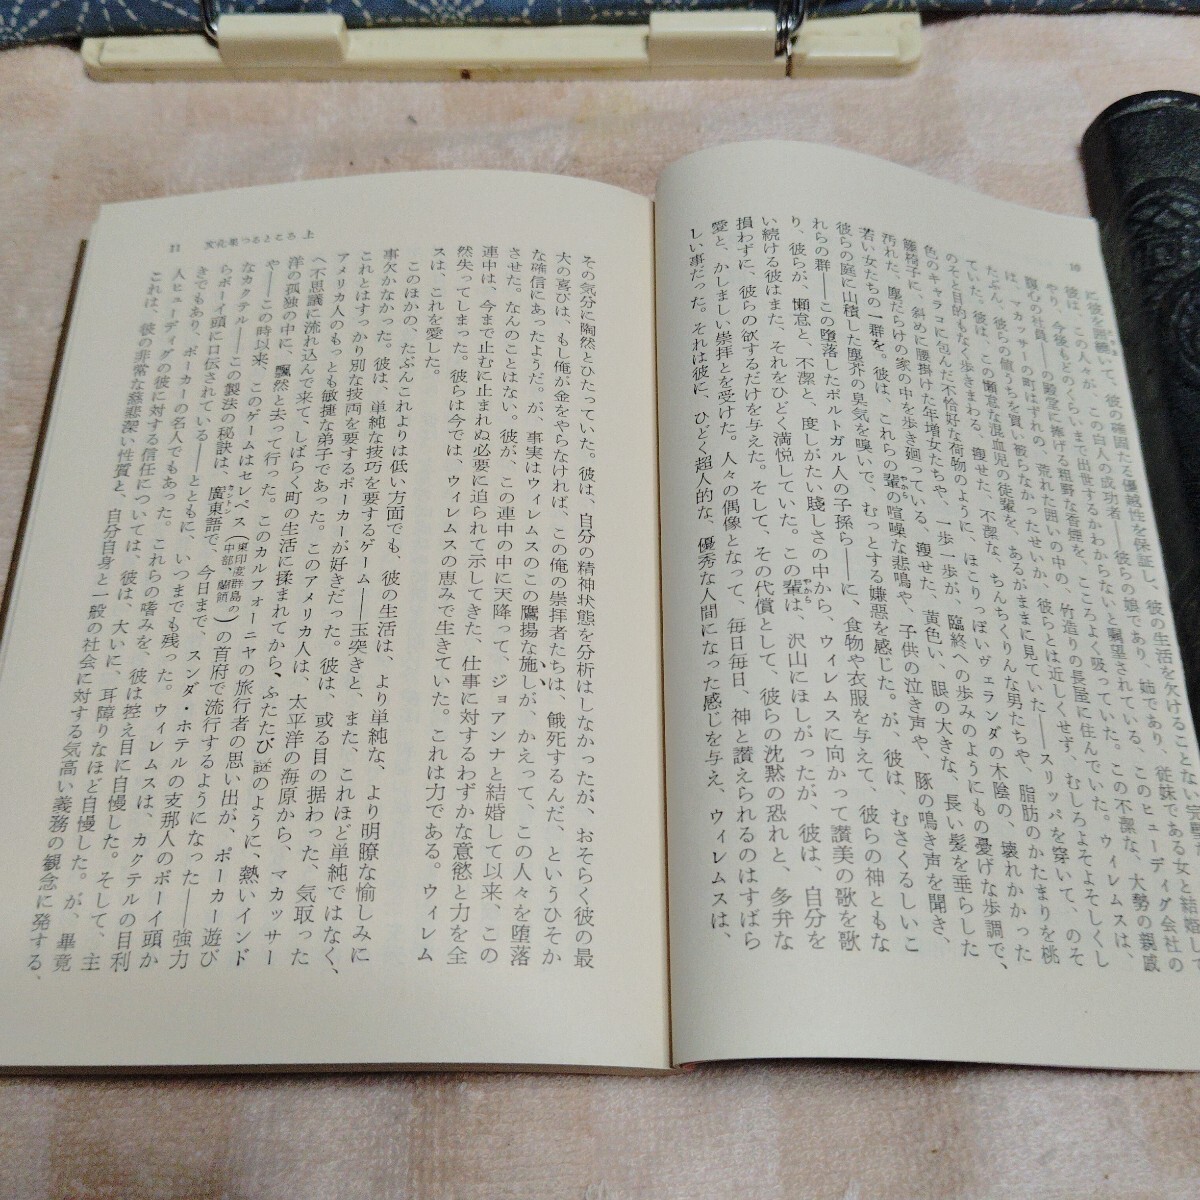 10
に彼を囲繞して、彼の確固たる優越性を保証し、彼の生活を欠けることない完璧
彼は、この人々が、この白人の成功者――彼らの娘であり、姉であり、従妹である女と結婚して
やり、今後もどのくらいまで出世するかわからないと嘱望されている、このヒューディグ会社の
腹心の社員――の殿堂に捧げる粗野な香煙を、こころよく吸っていた。この不潔な、大勢の親戚
は、マカッサーの町はずれの、荒れた囲いの中の、竹造りの長屋に住んでいた。ウィレムスは、
たぶん、彼らの値うちを買い被らなかったせいか、彼らとは近しくせず、むしろよそよそしくし
ていた。彼は、この懶怠な混血児の徒輩を、あるがままに見ていた――スリッパを穿いて、のそ
のそと目的もなく歩きまわる、瘦せた、不潔な、ちんちくりんな男たちや、脂肪のかたまりを桃
色のキャラコに包んだ不恰好な荷物のように、ほこりっぽいヴェランダの木陰の、壊れかかった
籐椅子に、斜めに腰掛けた年増女たちや、一歩一歩が、臨終への歩みのようにもの憂げな歩調で、
汚れた、塵だらけの家の中を歩き廻っている、瘦せた、黄色い、眼の大きな、長い髪を垂らした
若い女たちの一群を。彼は、これらの輩の喧噪な悲鳴や、子供の泣き声や、豚の鳴き声を聞き、
彼らの庭に山積した塵芥の臭気を嗅いで、むっとする嫌悪を感じた。が、彼は、むさくるしいこ
れらの群――この堕落したポルトガル人の子孫ら――に、食物や衣服を与えて、彼らの神ともな
り、彼らが、懶怠と、不潔と、度しがたい賤しさの中から、ウィレムスに向かって讃美の歌を歌
い続ける彼はまた、それをひどく満悦していた。この輩は、沢山にほしがったが、彼は、自分を
損わずに、彼らの欲するだけを与えた。そして、その代償として、彼らの沈黙の恐れと、多弁な
愛と、かしましい崇拝とを受けた。人々の偶像となって、毎日毎日、神と讃えられるのはすばら
しい事だった。それは彼に、ひどく超人的な、優秀な人間になった感じを与え、ウィレムスは、
11　文化果つるところ 上
その気分に陶然とひたっていた。彼は、自分の精神状態を分析はしなかったが、おそらく彼の最
大の喜びは、もし俺が金をやらなければ、この俺の崇拝者たちは、餓死するんだ、というひそか
な確信にあったようだ。が、事実はウィレムスのこの鷹揚な施しが、かえって、この人々を堕落
させた。なんのことはない。彼が、この連中の中に天降って、ジョアンナと結婚して以来、この
連中は、今まで止むに止まれぬ必要に迫られて示してきた、仕事に対するわずかな意慾と力を全
然失ってしまった。彼らは今では、ウィレムスの恵みで生きていた。これは力である。ウィレム
スは、これを愛した。
このほかの、たぶんこれよりは低い方面でも、彼の生活は、より単純な、より明瞭な愉しみに
事欠かなかった。彼は、単純な技巧を要するゲーム――玉突きと、また、これほど単純ではなく、
これとはすっかり別な技両を要するポーカーが好きだった。彼は、或る目の据わった、気取った
アメリカ人のもっとも敏捷な弟子であった。このアメリカ人は、太平洋の海原から、マカッサー
へ不思議に流れ込んで来て、しばらく町の生活に揉まれてから、ふたたび謎のように、熱いインド
洋の孤独の中に、飄然と去って行った。このカルフォーニヤの旅行者の思い出が、ポーカー遊び
や――この時以来、このゲームはセレベス（東印度群島の中部、蘭領）の首府で流行するようになった――強力
なカクテル――この製法の秘訣は、廣東語で、今日まで、スンダ・ホテルの支那人のボーイ頭か
らボーイ頭に口伝されている――とともに、いつまでも残った。ウィレムスは、カクテルの目利
きでもあり、ポーカーの名人でもあった。これらの嗜みを、彼は控え目に自慢した。そして、主
人ヒューディグの彼に対する信任については、彼は、大いに、耳障りなほど自慢した。が、畢竟
これは、彼の非常な慈悲深い性質と、自分自身と一般の社会に対する気高い義務の観念に発する、